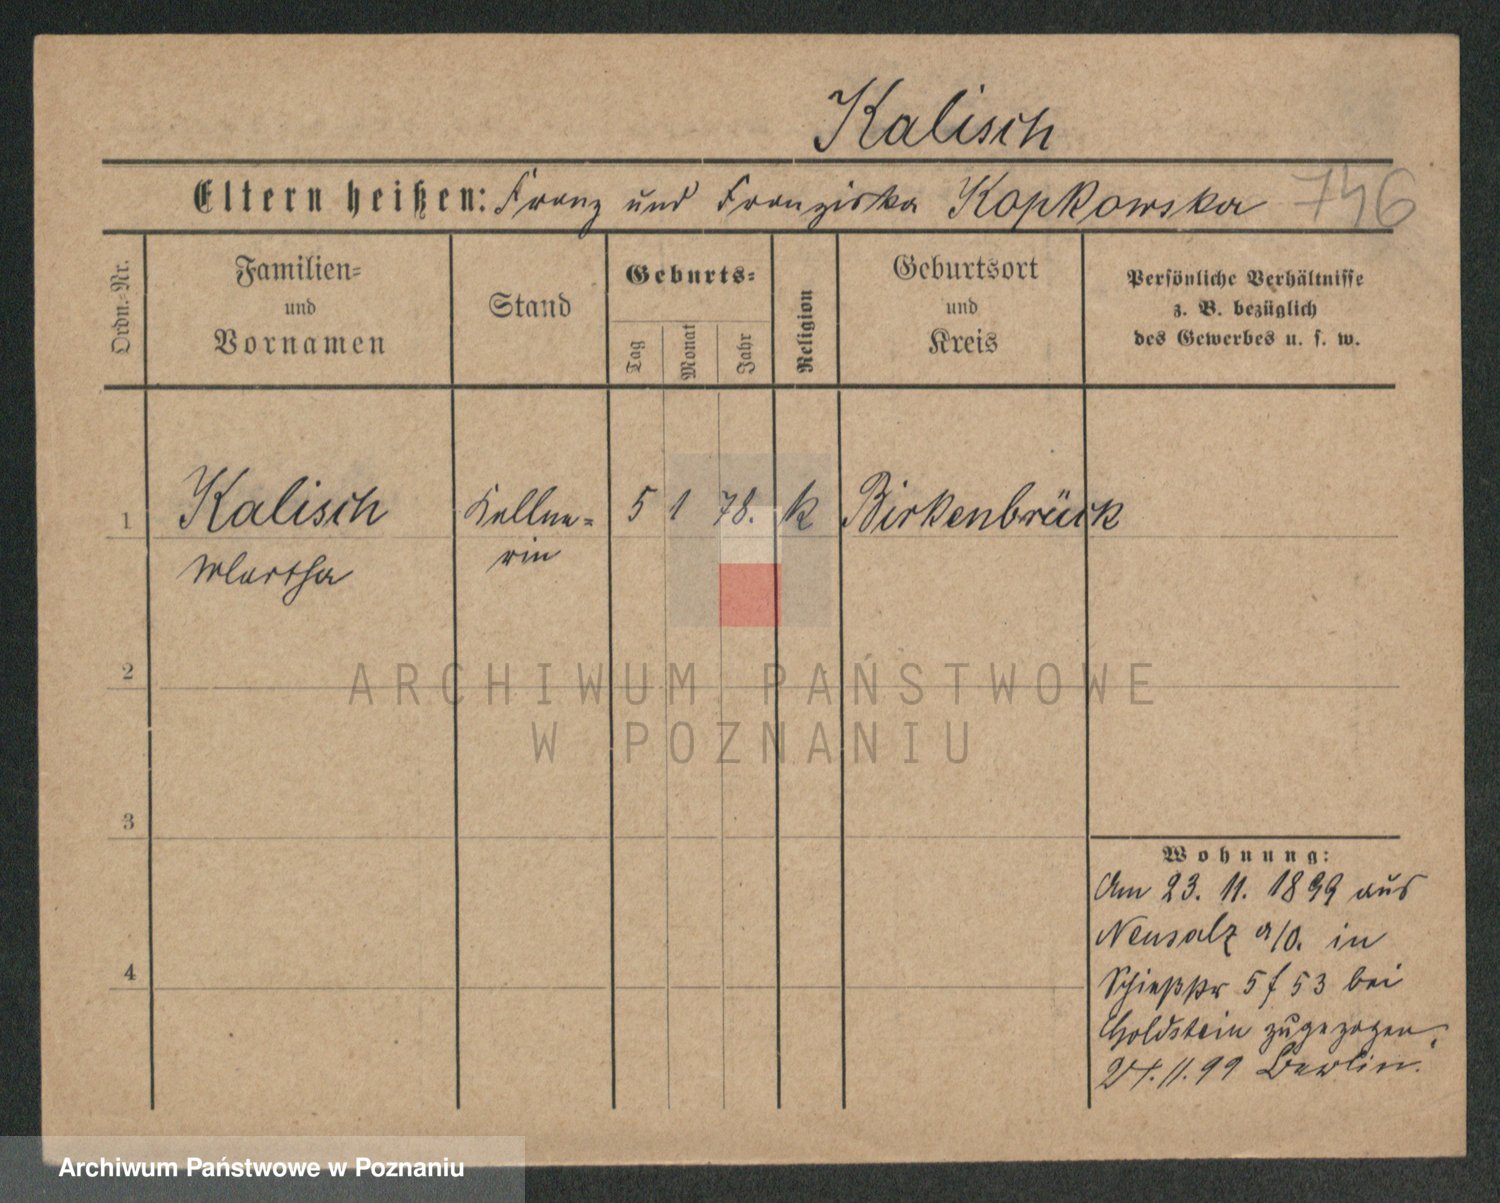 Kalisch
Eltern heißen: Franz und Franziska Kopkowska 746
Ordn.-Nr.
Familien-
und
Vornamen
Stand
Geburts-
Tag
Monat
Jahr
Religion
Geburtsort
und
Kreis
Persönliche Verhältnisse
z. B. bezüglich
des Gewerbes u. s. w.
1 Kalisch Kellne- 5 1 78. k Birkenbrück
Martha rin
2
3
4
Wohnung:
Am 23. 11. 1899 aus
Neusalz a/O. in
Schießstr 5 f 53 bei
Goldstein zugezogen.
27.11.99 Berlin.
ARCHIWUM PAŃSTWOWE
W POZNANIU
Archiwum Państwowe w Poznaniu